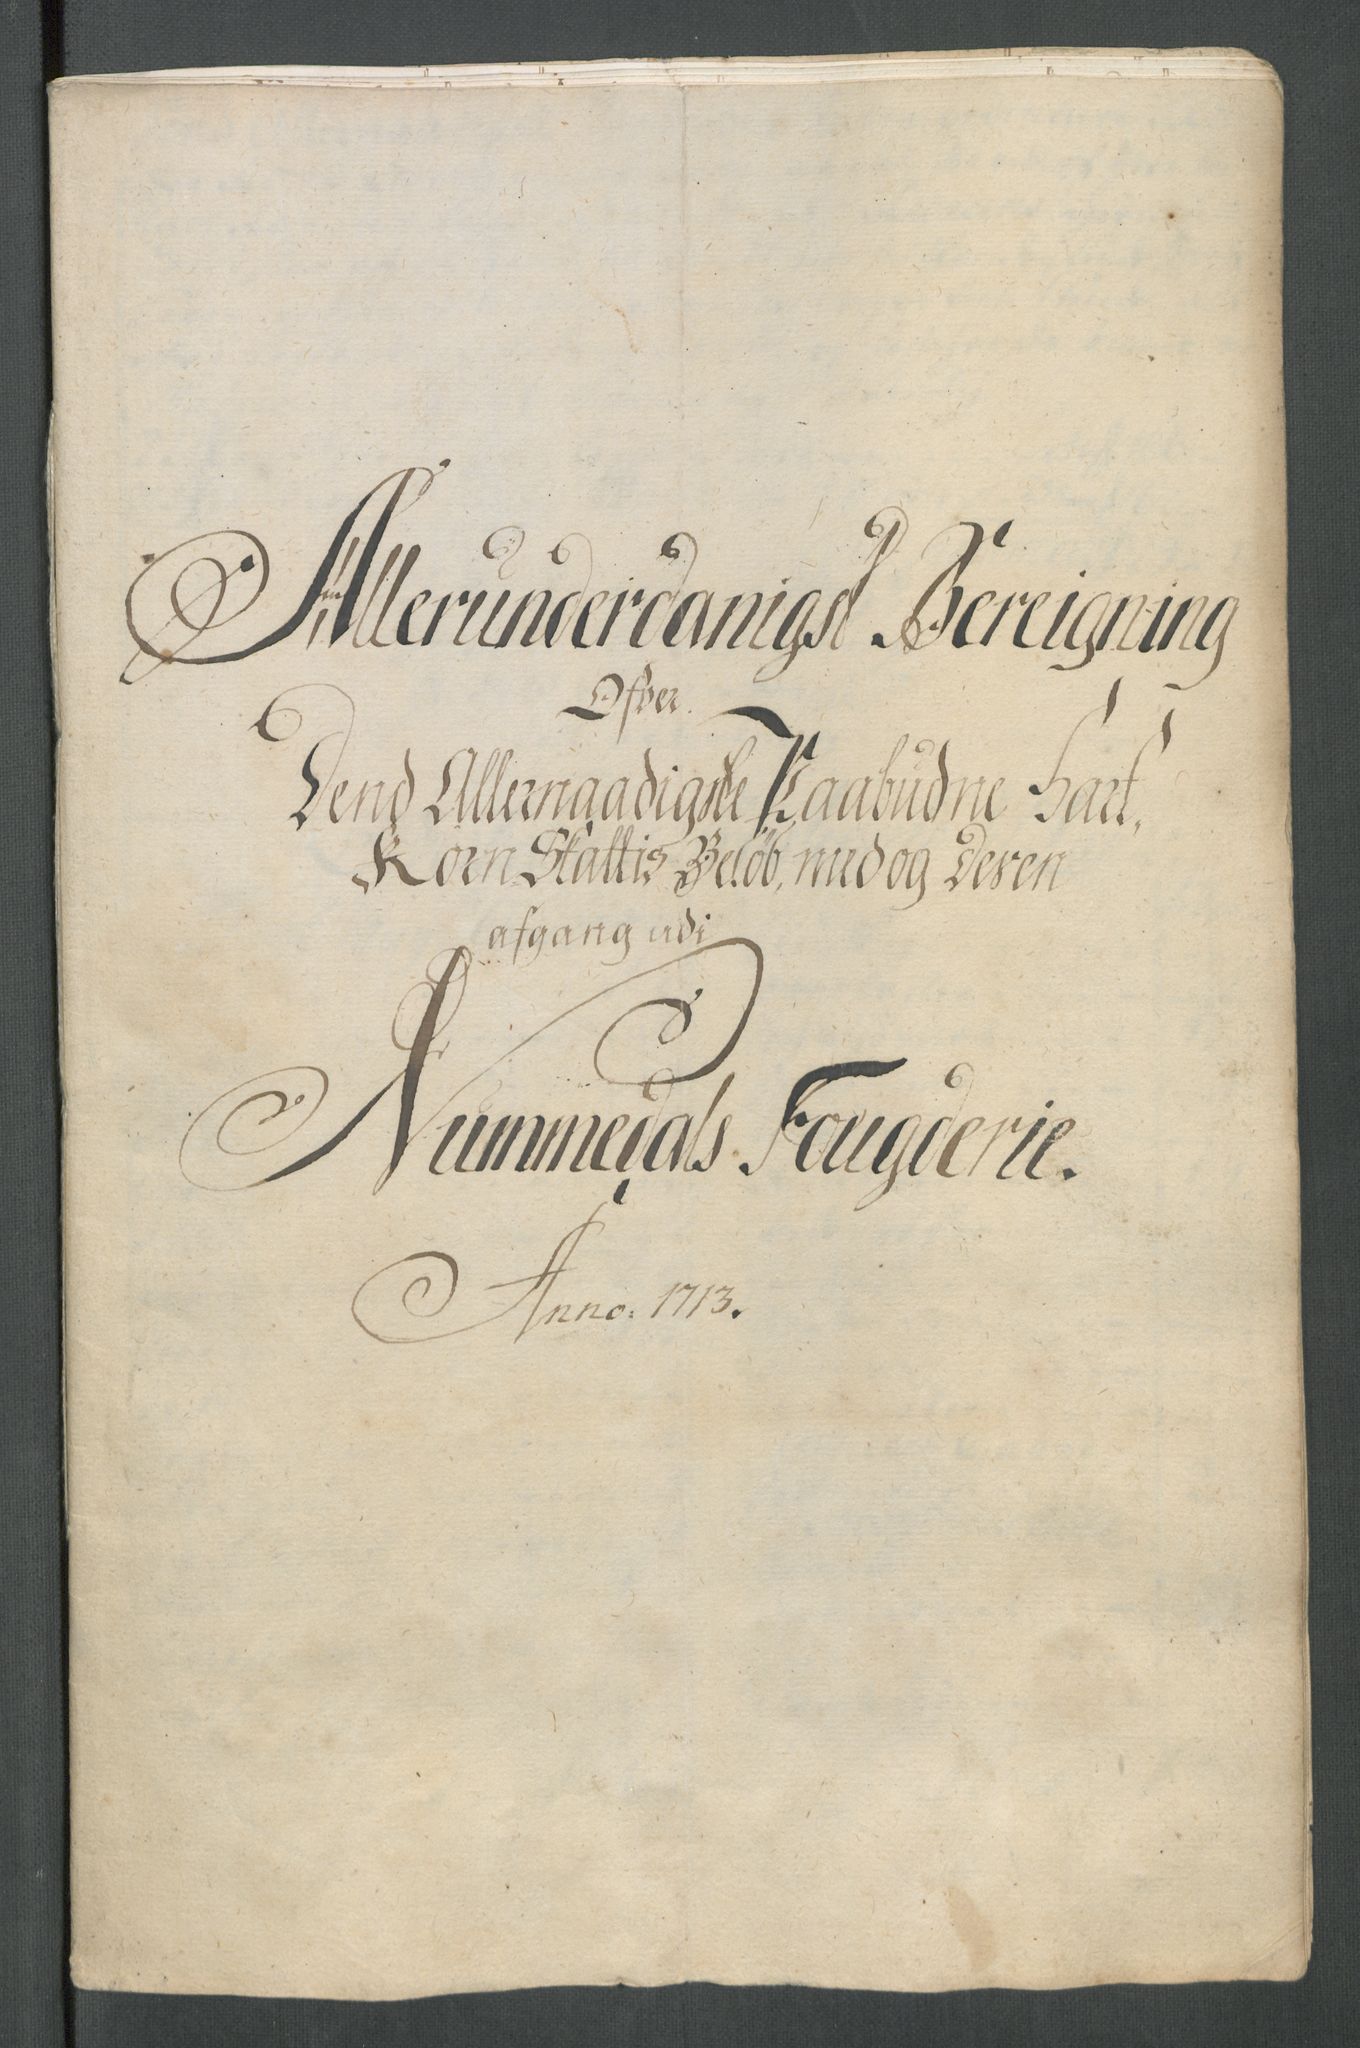 Allerunderdanigst Bereigning
Ofver
Dend Allernaadigste Paabudne Hart,
Korn Skattis Beløb, med og Desen
afgang udi
Nummedals Fougderie.
Anno: 1713.